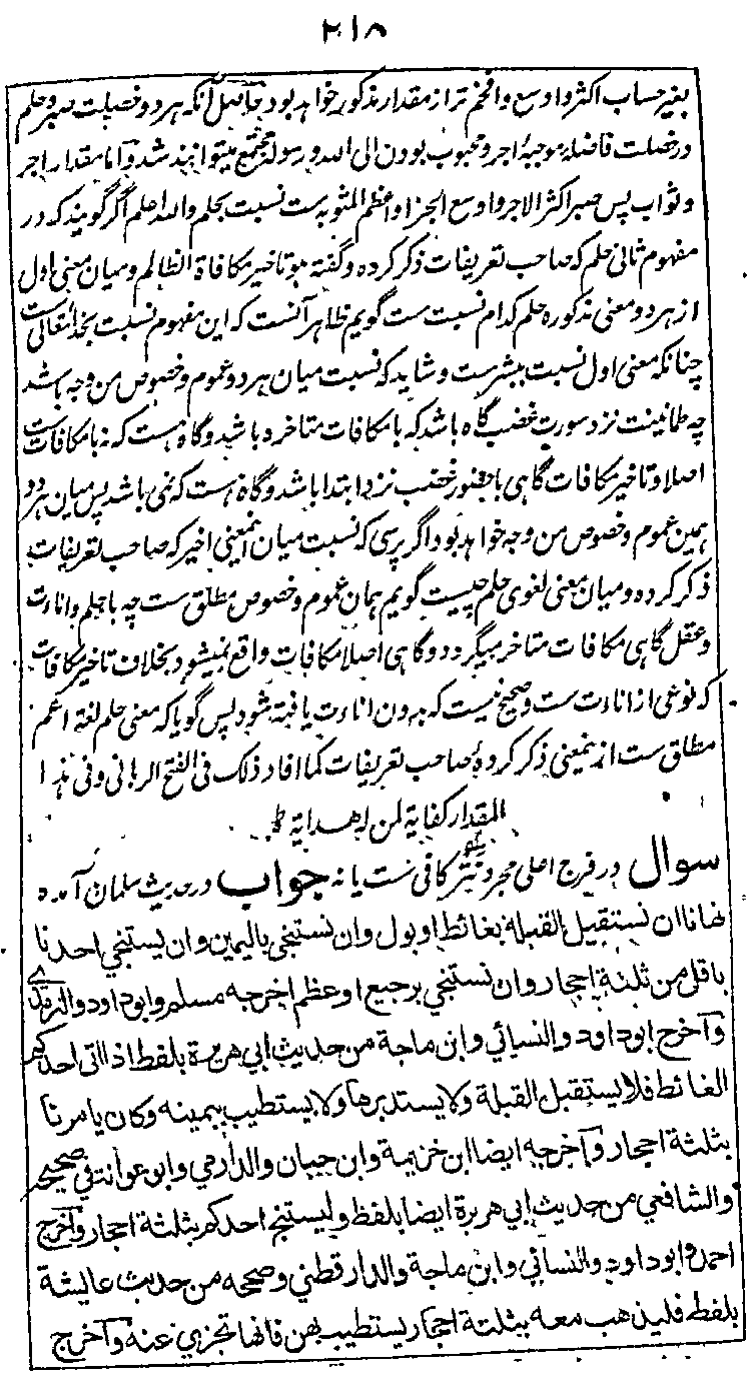 ۲۱۸
بغیر حساب اکثر و اوسع و افخم تر از مقدار مذکور خواهد بود حاصل آنکه هر دو خصلت صبر و حلم
در خصلت فاضله موجبهٔ اجر و محبوب بودن الی الله و رسوله مجتمع میتوانند شد و اما مقدار اجر
و ثواب پس صبر اکثر الاجر و اوسع الجزا و اعظم المثوبه ست نسبت بحلم والله اعلم اگر گویند که در
مفهوم ثانی حلم که صاحب تعریفات ذکر کرده و گفته هو تاخیر مکافاة الظالم و میان معنی اول
از هر دو معنی مذکوره حلم کدام نسبت ست گویم ظاهر آنست که این مفهوم نسبت بخدایتعالی ست
چنانکه معنی اول نسبت ببشرست و شاید که نسبت میان هر دو عموم و خصوص من وجه باشد
چه طمانینت نزد سورت غضب گاه باشد که با مکافات متاخره باشد و گاه هست که نه با مکافات ست
اصلا و تاخیر مکافات گاهی با حضور غضب نزد ابتدا باشد و گاه هست که نمی باشد پس میان هر دو
همین عموم و خصوص من وجه خواهد بود اگر پرسی که نسبت میان اینمعنی اخیر که صاحب تعریفات
ذکر کرده و میان معنی لغوی حلم چیست گویم همان عموم و خصوص مطلق ست چه با حلم و اناءت
و عقل گاهی مکافات متاخر میگردد و گاهی اصلا مکافات واقع نمیشود بخلاف تاخیر مکافات
که نوعی از اناءت ست و صحیح نیست که بدون اناءت یافته شود پس گویا که معنی حلم لغة اعم
مطلق ست از نمعنی ذکر کردهٔ صاحب تعریفات کما افاد ذلک فی الفتح الربانی و فی هذا
المقدار کفایة لمن له هدایة ط
سوال در فرج اعلی مجرد نتر کافی ست یا نه جواب در حدیث سلمان آمده
نهانا ان نستقبل القبلة بغائط او بول وان نستنجی بالیمین وان یستنجی احدنا
باقل من ثلثة احجار وان نستنجی برجیع او عظم اخرجه مسلم وابوداود والترمذی
وآخرج ابوداود والنسائی وابن ماجة من حدیث ابی هریرة بلفظ اذا اتی احدکم
الغائط فلا یستقبل القبلة ولا یستدبرها ولا یستطیب بیمینه وکان یامرنا
بثلثة احجار وآخرجه ایضا ابن خزیمة وابن حبان والدارمی وابو عوانة فی صحیحه
والشافعی من حدیث ابی هریرة ایضا بلفظ ولیستنج احدکم بثلثة احجار وآخرج
احمد وابوداود والنسائی وابن ماجة والدارقطنی وصححه من حدیث عایشة
بلفظ فلیذهب معه بثلثة احجار یستطیب بهن فانها تجزی عنه وآخرج